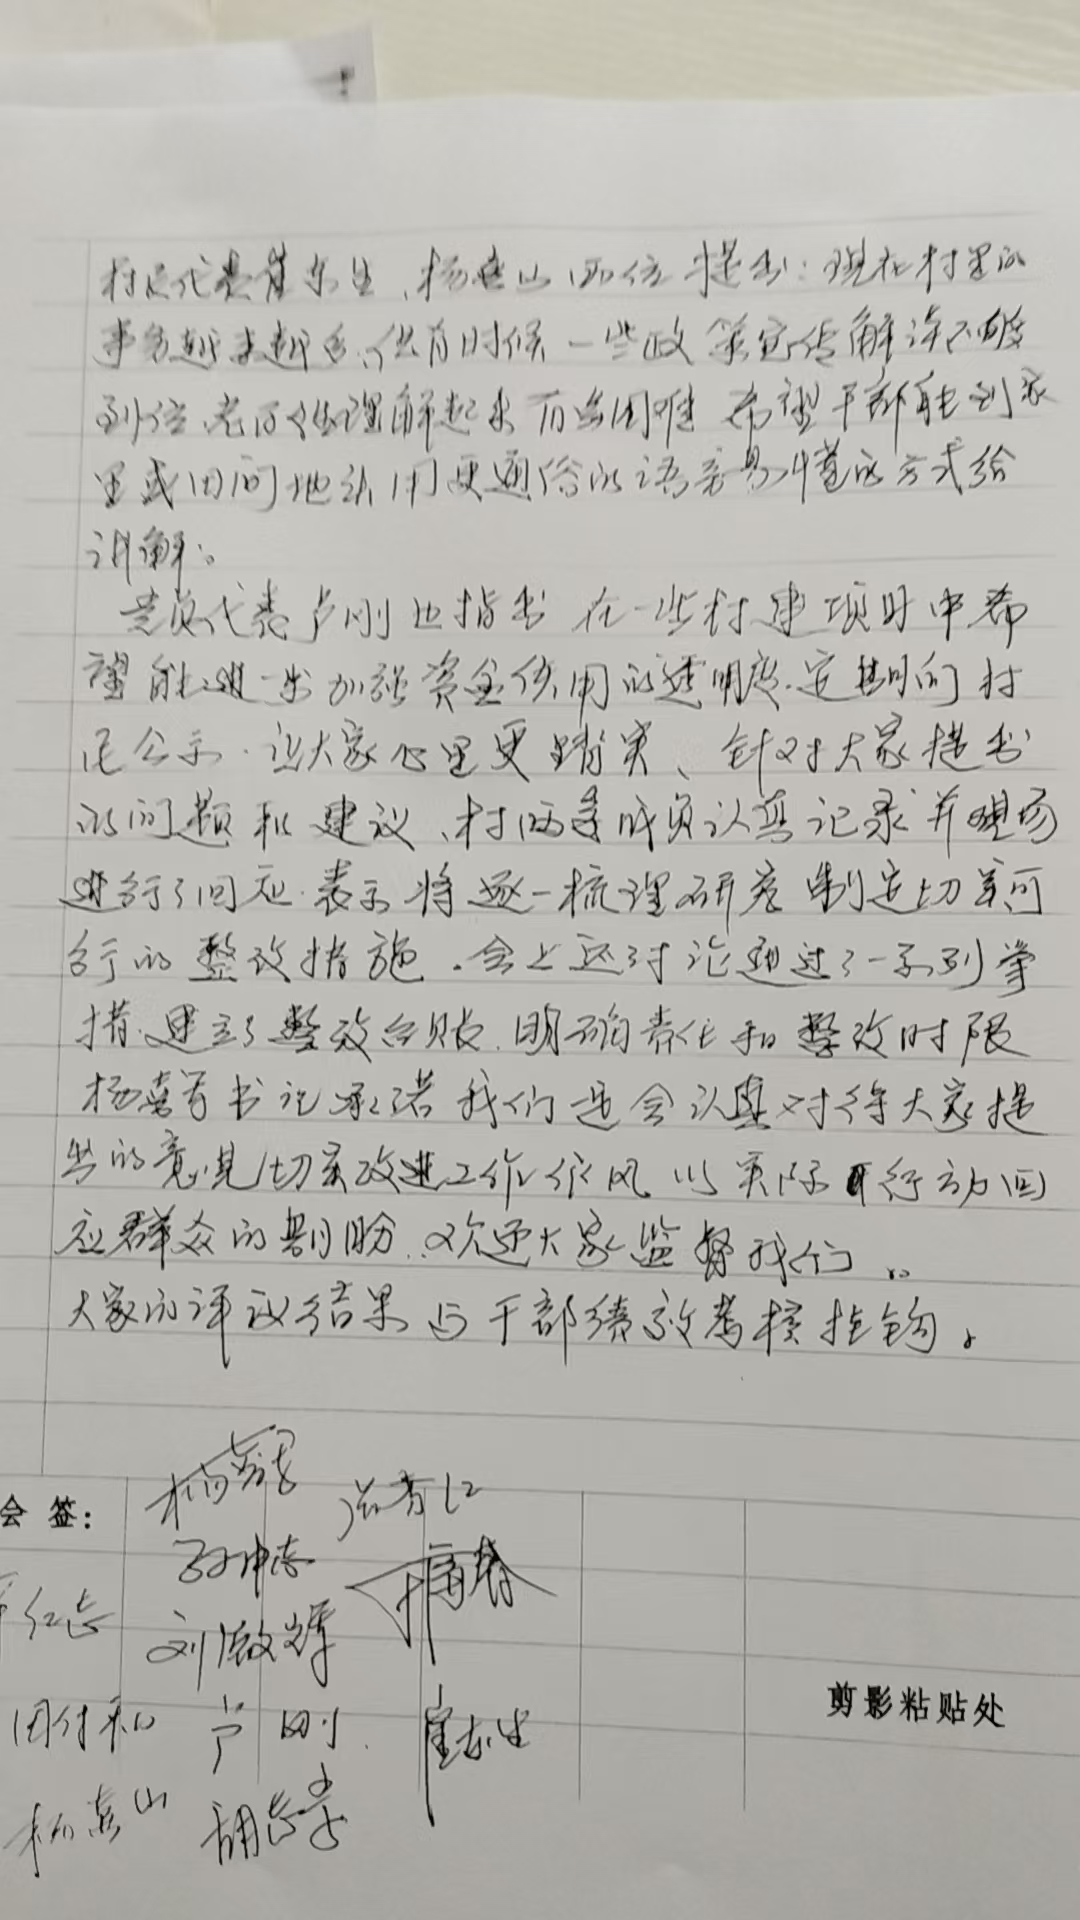 村民代表崔东生、杨喜山两位提出:现在村里的
事务越来越多,但有时候一些政策宣传解读不够
到位,老百姓理解起来有些困难 希望干部能到家
里或田间地头用更通俗的语言易懂的方式给
讲解。
党员代表卢刚也指出 在一些村建项时中希
望能进一步加强资金使用的透明度.定期向村
民公示.让大家心里更踏实、针对大家提出
的问题和建议、村两委成员认真记录并现场
进行了回应.表示将逐一梳理研究制定切实可
行的整改措施.会上还讨论通过了一系列举
措.建立了整改台账.明确责任和整改时限
杨喜 书记承诺我们是会认真对待大家提
出的意见切实改进工作作风 以实际行动回
应群众的期盼.欢迎大家监督我们。
大家的评议结果与干部绩效考核挂钩。
会 签:
孙中志
红志
刘 辉
田付和 卢刚
崔东生
剪影粘贴处
杨喜山 胡志学